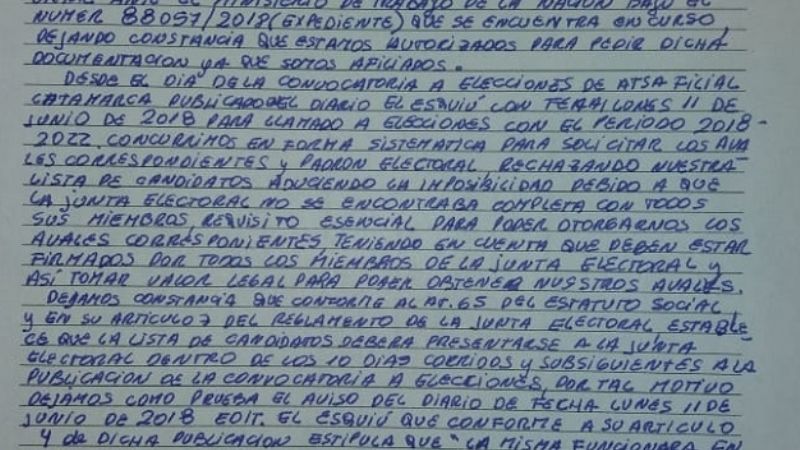 MINISTERIO DE TRABAJO DE LA NACION BAJO EL
NUMER 88057/2018 (EXPEDIENTE) QUE SE ENCUENTRA EN CURSO,
DEJANDO CONSTANCIA QUE ESTAMOS AUTORIZADOS PARA PEDIR DICHA
DOCUMENTACION ya QUE SOMOS AFILIADOS.
DESDE EL DIA DE LA CONVOCATORIA A ELECCIONES DE ATSA FILIAL
CATAMARCA PUBLICADO DEL DIARIO EL ESQUIÚ CON FECHA LUNES 11 DE
JUNIO DE 2018 PARA LLAMADO A ELECCIONES CON EL PERIODO 2018-
2022, CONCURRIMOS EN FORMA SISTEMATICA PARA SOLICITAR LOS AVA
LES CORRESPONDIENTES y PADRON ELECTORAL RECHAZANDO NUESTRA
LISTA DE CANDIDATOS ADUCIENDO LA IMPOSIBILIDAD DEBIDO A QUE
LA JUNTA ELECTORAL NO SE ENCONTRABA COMPLETA CON TODOS
SUS MIEMBROS, REQUISITO ESENCIAL PARA PODER OTORGARNOS LOS
AVALES CORRESPONIENTES, TENIENDO EN CUENTA QUE DEBEN ESTAR
FIRMADOS POR TODOS LOS MIEMBROS DE LA JUNTA ELECTORAL y
ASÍ TOMAR VALOR LEGAL PARA PODER OBTENER NUESTROS AVALES.
DEJAMOS CONSTANCIA QUE CONFORME AL ART. 65 DEL ESTATUTO SOCIAL
y EN SU ARTICULO 7 DEL REGLAMENTO DE LA JUNTA ELECTORAL ESTABLE
CE QUE LA LISTA DE CANDIDATOS DEBERA PRESENTARSE A LA JUNTA
ELECTORAL DENTRO DE LOS 10 DIAS CORRIDOS y SUBSIGUIENTES A LA
PUBLICACION DE LA CONVOCATORIA A ELECCIONES, POR TAL MOTIVO
DEJAMOS COMO PRUEBA EL AVISO DEL DIARIO DE FECHA LUNES 11 DE
JUNIO DE 2018 EDIT. EL ESQUIÚ QUE CONFORME A SU ARTICULO
4 de DICHA PUBLICACION ESTIPULA QUE "LA MISMA FUNCIONARA EN